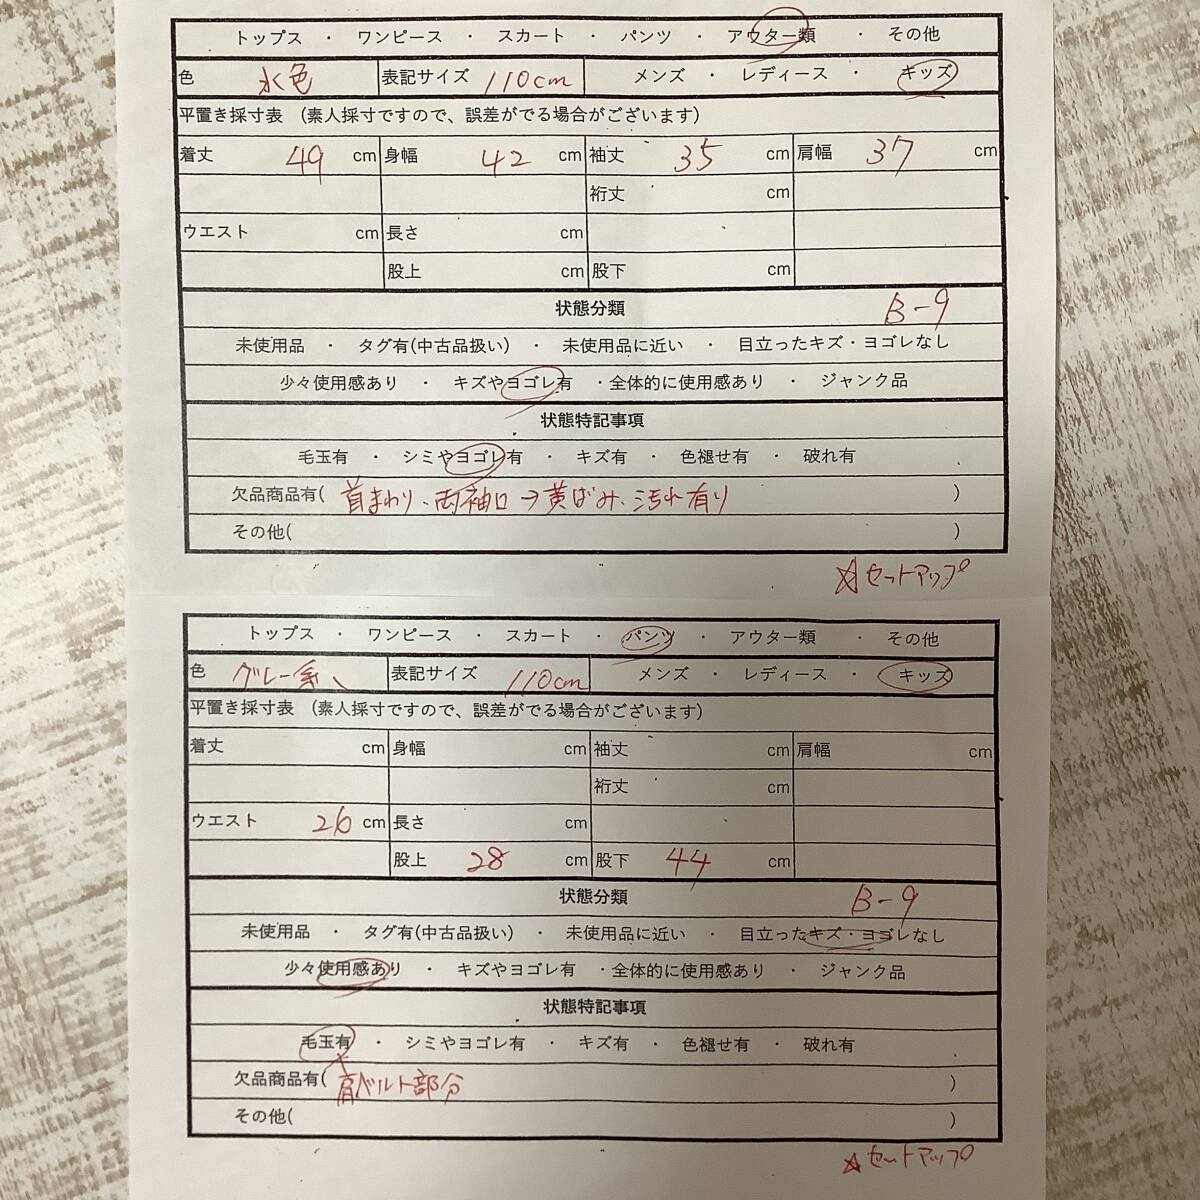 トップス ・ ワンピース ・ スカート ・ パンツ ・ アウター類 ・ その他
色 水色 表記サイズ 110cm メンズ ・ レディース ・ キッズ
平置き採寸表 (素人採寸ですので、誤差がでる場合がございます)
着丈 49 cm 身幅 42 cm 袖丈 35 cm 肩幅 37 cm
裄丈 cm
ウエスト cm 長さ cm
股上 cm 股下 cm
状態分類 B-9
未使用品 ・ タグ有(中古品扱い) ・ 未使用品に近い ・ 目立ったキズ・ヨゴレなし
少々使用感あり ・ キズやヨゴレ有 ・全体的に使用感あり ・ ジャンク品
状態特記事項
毛玉有 ・ シミやヨゴレ有 ・ キズ有 ・ 色褪せ有 ・ 破れ有
欠品商品有( 首まわり、両袖口→黄ばみ、汚れ有り )
その他( )
☆セットアップ
トップス ・ ワンピース ・ スカート ・ パンツ ・ アウター類 ・ その他
色 グレー系、 表記サイズ 110cm メンズ ・ レディース ・ キッズ
平置き採寸表 (素人採寸ですので、誤差がでる場合がございます)
着丈 cm 身幅 cm 袖丈 cm 肩幅 cm
裄丈 cm
ウエスト 26 cm 長さ cm
股上 28 cm 股下 44 cm
状態分類 B-9
未使用品 ・ タグ有(中古品扱い) ・ 未使用品に近い ・ 目立ったキズ・ヨゴレなし
少々使用感あり ・ キズやヨゴレ有 ・全体的に使用感あり ・ ジャンク品
状態特記事項
毛玉有 ・ シミやヨゴレ有 ・ キズ有 ・ 色褪せ有 ・ 破れ有
欠品商品有( 肩ベルト部分 )
その他( )
☆セットアップ